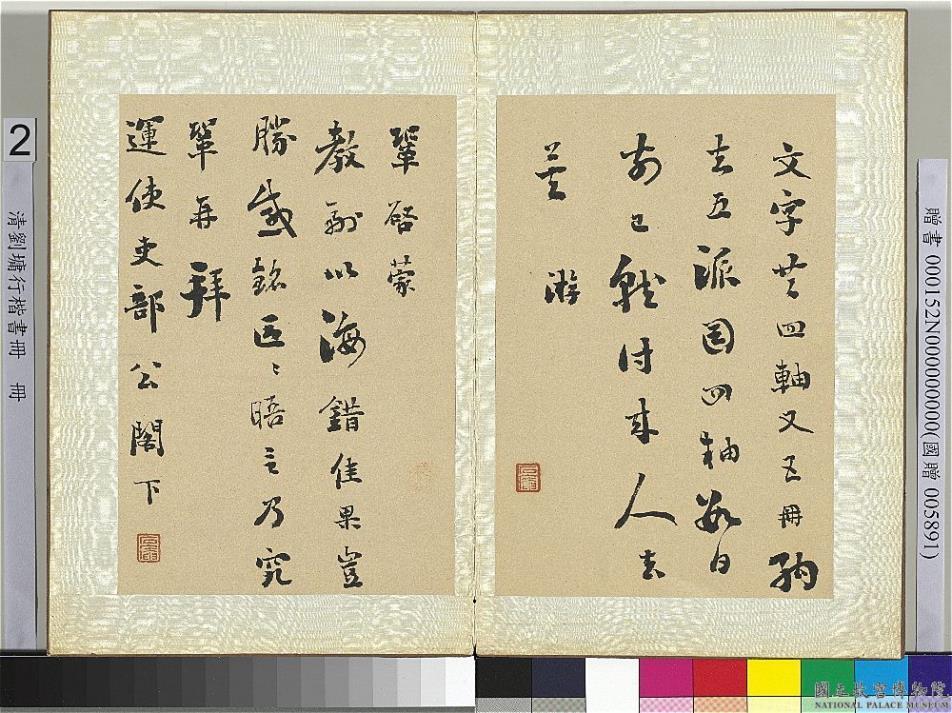 文字共四軸又五冊納
去五派圖四軸數日
前已就付來人去
鞏啓蒙
教副以海錯佳果豈
勝感銘區〻晤言乃究
鞏再拜
運使吏部公閣下
2
清劉墉行楷書冊 冊
贈書 000152N000000000(國贈 005891)
國立故宮博物院
NATIONAL PALACE MUSEUM